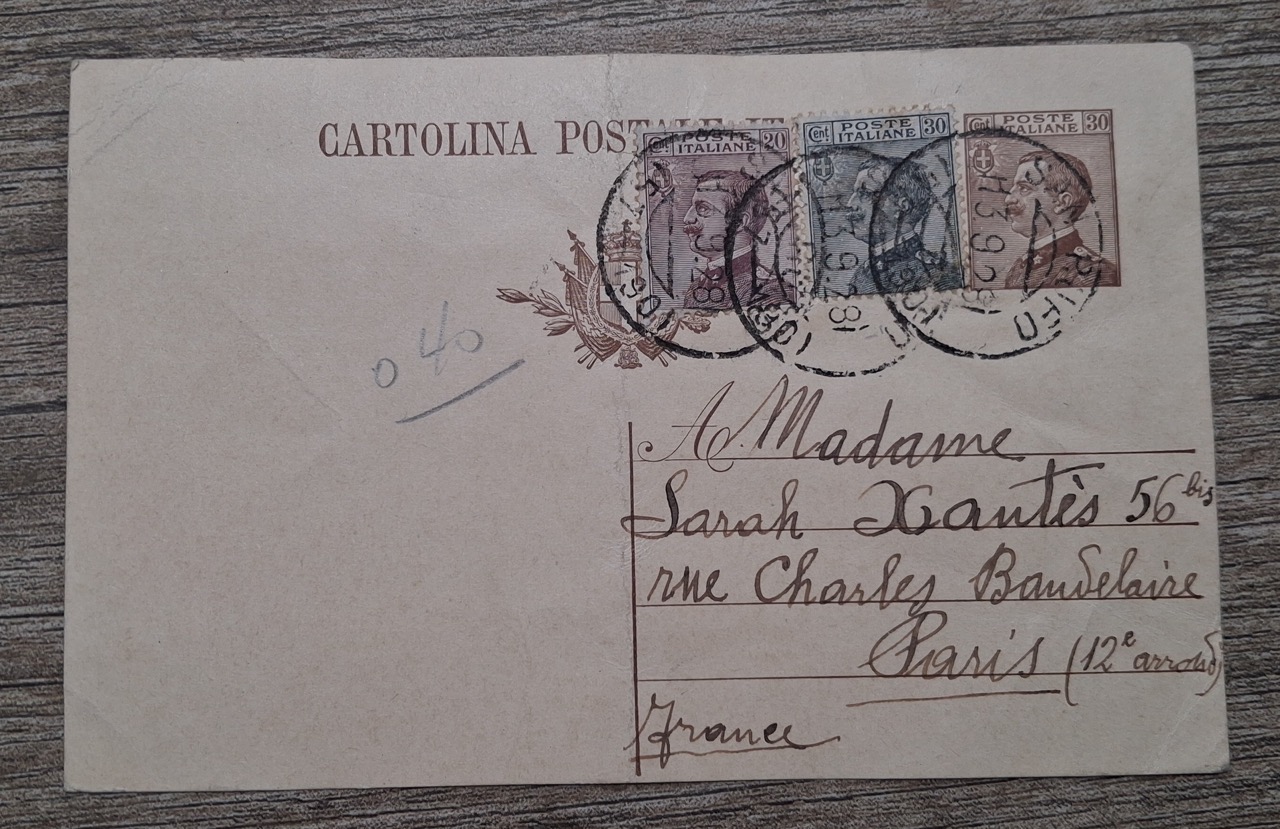 CARTOLINA POSTALE IT
Cent POSTE ITALIANE 20
Cent POSTE ITALIANE 30
Cent POSTE ITALIANE 30
H 3 9 28
0 40
A Madame
Sarah Xantès 56 bis
rue Charles Baudelaire
Paris (12e arrond)
France